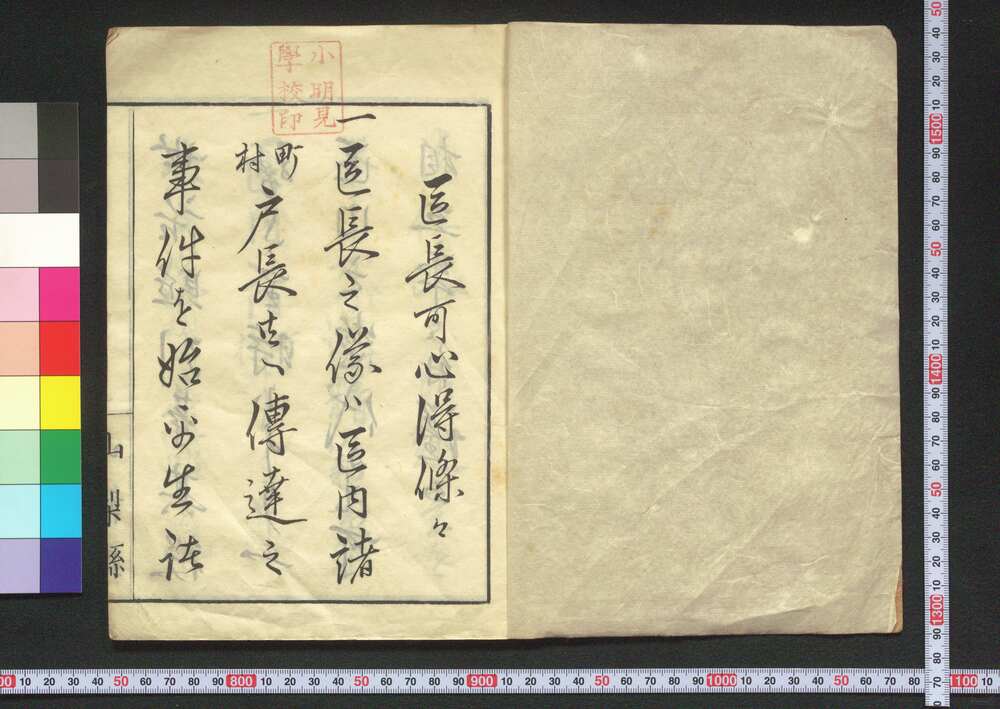 小明見
學校印
區長可心得條々
一區長之儀ハ區内諸
町村戸長共ヘ傳達之
事件を始
山梨縣